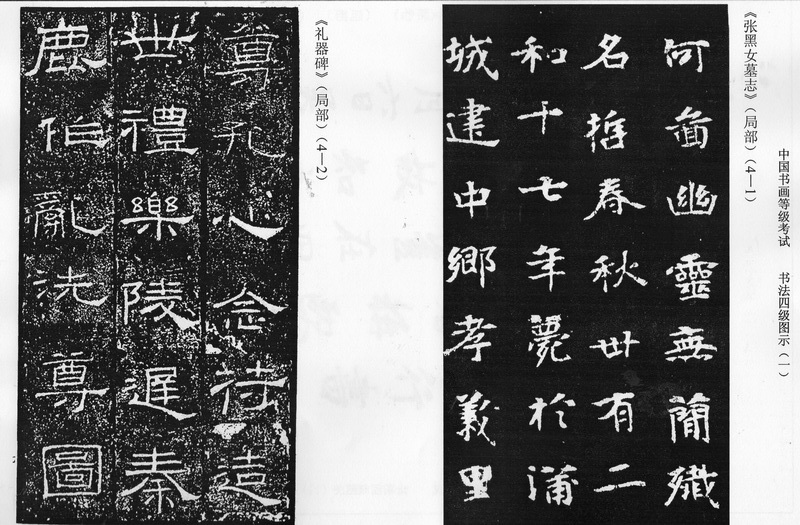 中国书画等级考试 书法四级图示(一)
《张黑女墓志》(局部)(4—1)
何啚幽靈無簡殲
名楉春秋卅有二
和十七年薨於蒲
城建中鄉孝義里
《礼器碑》(局部)(4—2)
尊孔心念待造
世禮樂陵遲秦
鹿伯亂洗尊圖